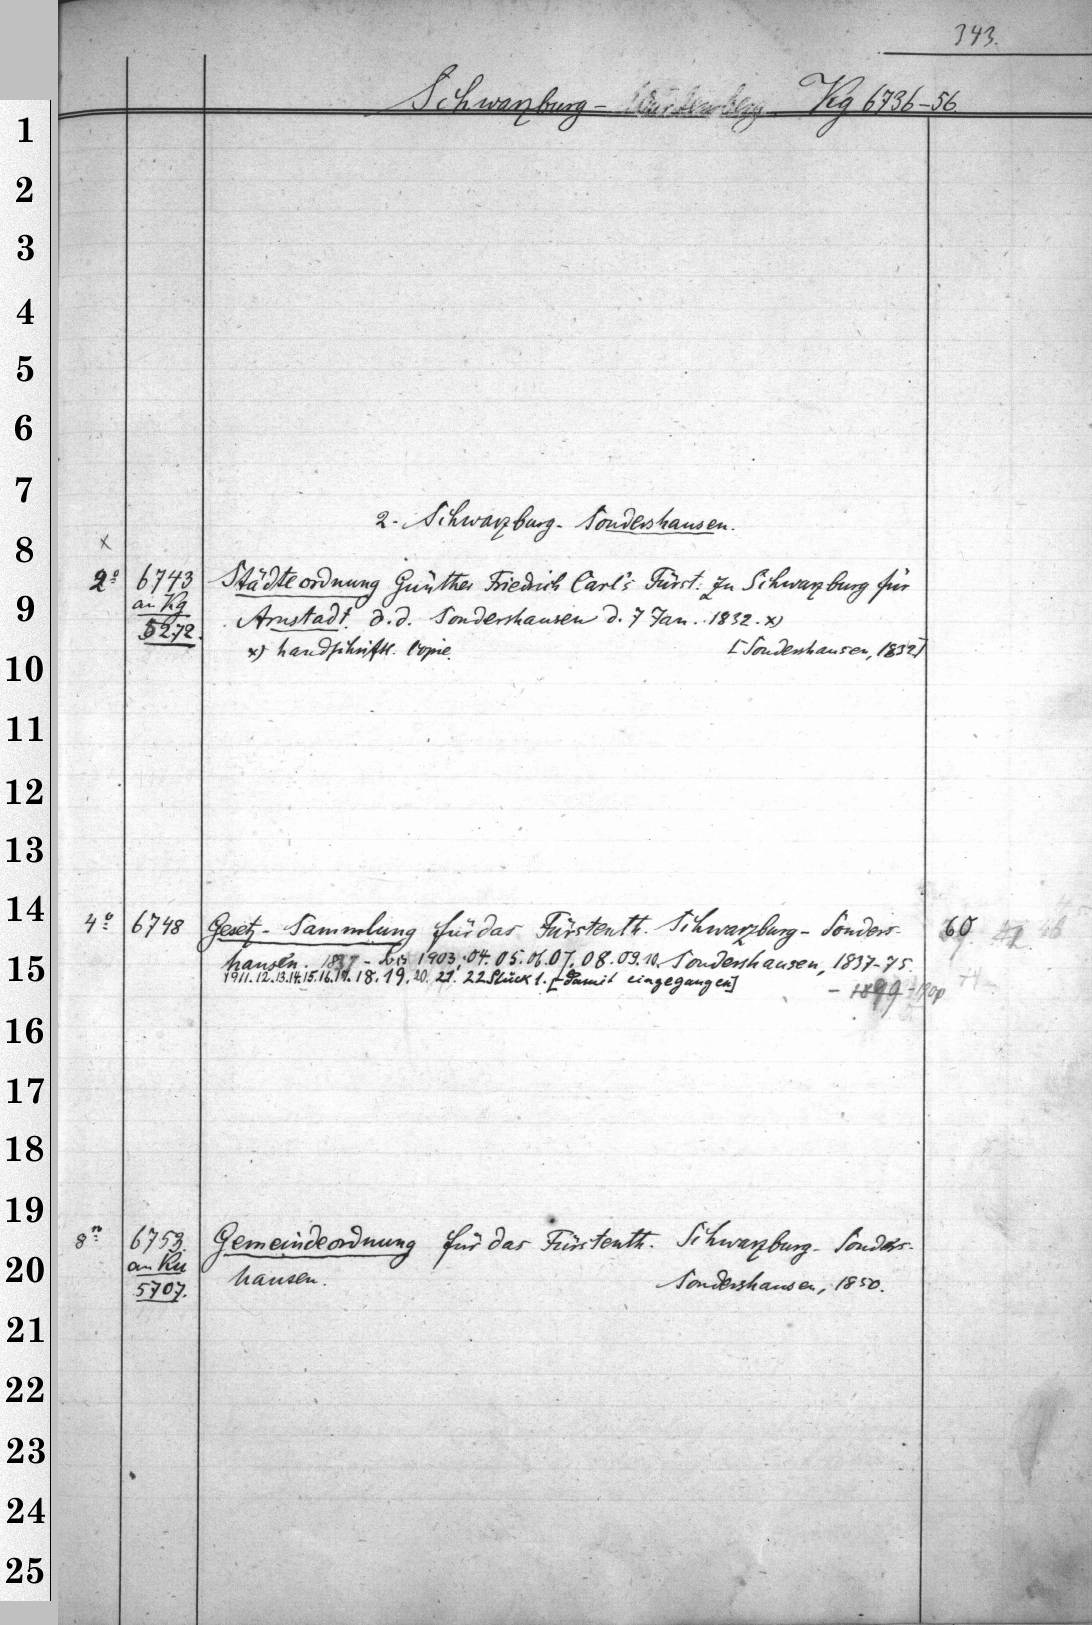 343.
Schwarzburg- Kg 6736-56
1
2
3
4
5
6
7
2. Schwarzburg-Sondershausen.
8 x
2° 6743 Städteordnung Günther Friedrich Carl's Fürst. zu Schwarzburg für
9 an Kg Arnstadt. d.d. Sondershausen d. 7 Jan. 1832. x)
5272. x) handschriftl. Copie. [Sondershausen, 1832]
10
11
12
13
14
4° 6748 Gesetz-Sammlung für das Fürstenth. Schwarzburg-Sonders- 60
15 hausen. 1837- bis 1903, 04. 05. 06. 07. 08. 09. 10. Sondershausen, 1837-75.
1911. 12. 13. 14. 15. 16. 17. 18. 19. 20. 21. 22 Stück 1. [Damit eingegangen]
- 1899
16
17
18
19
8° 6753. Gemeindeordnung für das Fürstenth. Schwarzburg-Sonders-
20 an Ku hausen. Sondershausen, 1850.
5707.
21
22
23
24
25